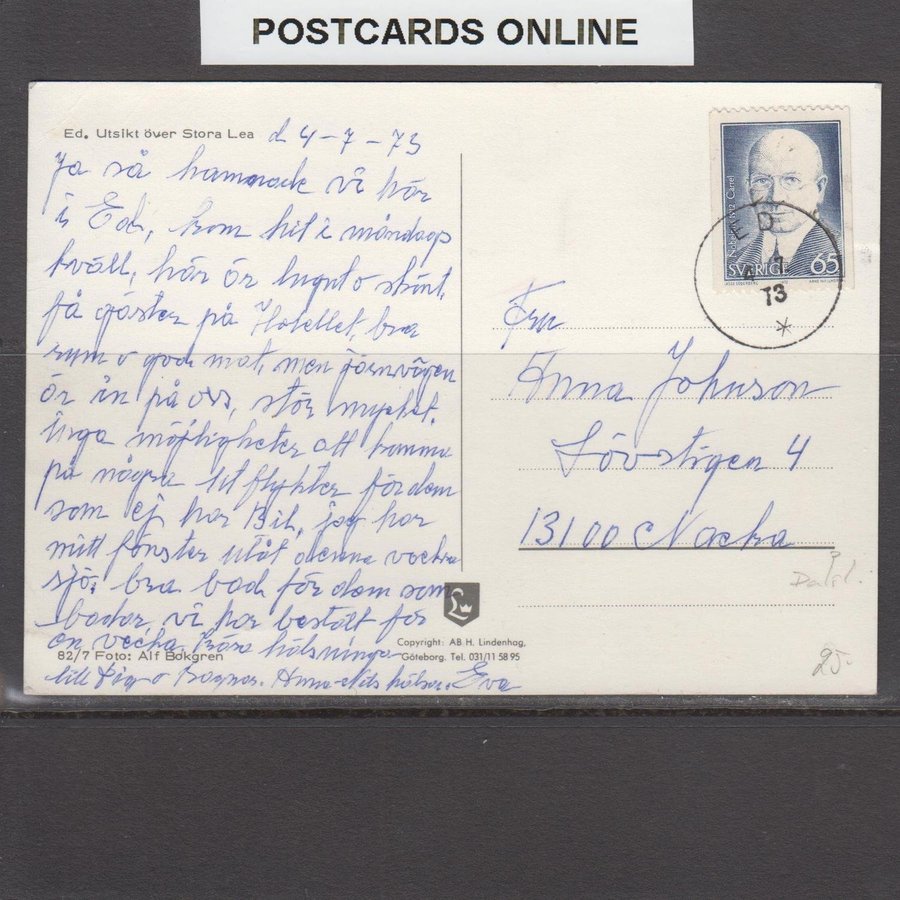 POSTCARDS ONLINE
Ed. Utsikt över Stora Lea d 4-7-73
Ja så hamnade vi här
i Ed, kom hit i måndags
kväll, här är lugnt o skönt,
få gäster på Hotellet, bra
rum o god mat, men järnvägen
är in på oss, stör mycket.
Inga möjligheter att komma
på några utflykter för dem
som ej har Bil, jag har
mitt fönster utåt denna vackra
sjö, bra bad för dem som
badar, vi har beställt för
en vecka. Kära hälsningar
till Dig o Ragnar. Anna-Nils hälsar. Eva
82/7 Foto: Alf Bokgren
Copyright: AB H. Lindenhag,
Göteborg. Tel. 031/11 58 95
Nobelpris 1912 Carrel
SVERIGE 65
ED
4 7
73
*
Fru
Anna Johnson
Lövstigen 4
13100 Nacka
25-